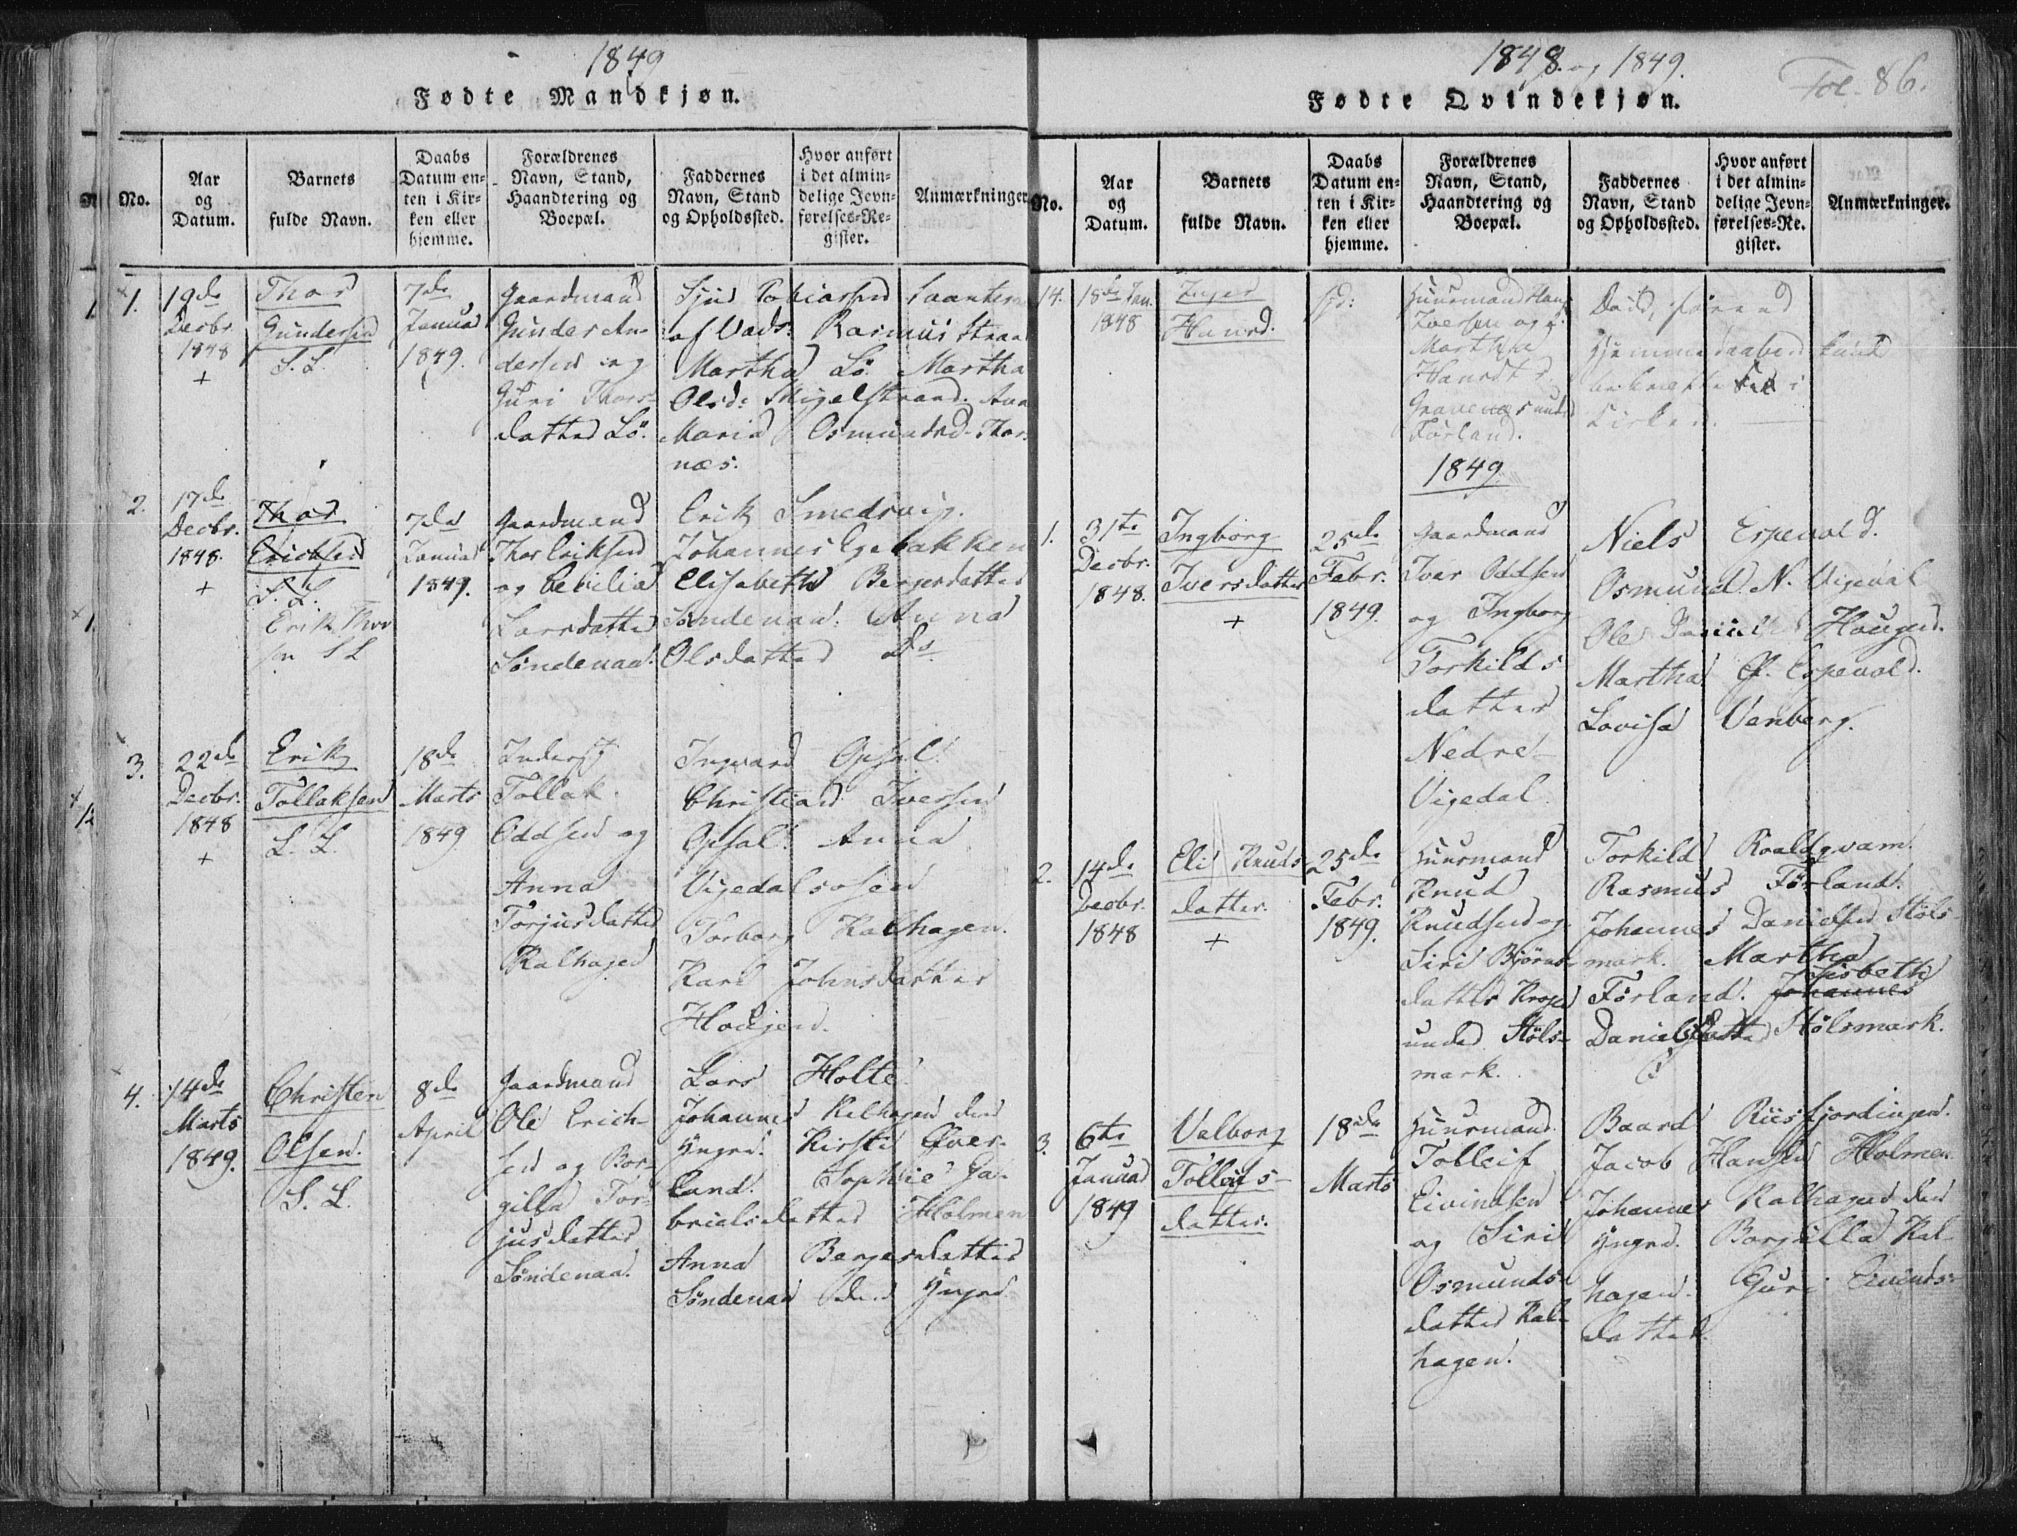 1849
Fødte Mandkjøn.
No.
Aar
og
Datum.
Barnets
fulde Navn.
Daabs
Datum en-
ten i Kir-
ken eller
hjemme.
Forældrenes
Navn, Stand,
Haandtering og
Boepæl.
Faddernes
Navn, Stand
og Opholdssted.
Hvor anført
i det almin-
delige Jevn-
førelses-Re-
gister.
Anmærkninger
1.
19de
Decbr.
1848
+
Thor
Gundersen
S. L.
7de
Januar
1849.
Gaardmand
Gunder An-
dersen og
Guri Thors-
datter Lö.
Sjur Tobiassen
af Vads: Rasmus
Martha Lö Martha
Olsd: Migelstrand. Ann
Maria Osmundsd. Thor-
næs.
2.
17de
Decbr.
1848.
+
Thor
Erichsen
S. L.
Erik Thor
sen S L
7de
Januar
1849.
Gaardmand
Thor Eriksen
og Cecilia
Larsdatter
Söndenaa.
Erik Smedsvig.
Johannes Egebakken
Elisabeth Bergesdatter
Söndenaa. Anna
Olsdatter Ds
3.
22de
Decbr.
1848
+
Erik
Tollaksen
S. L.
18de
Marts
1849
Inderst
Tollak
Oddsen og
Anna
Torjusdatter
Kalhagen
Ingvard Opsal.
Christian Iversen
Opsal. Anna
Vigedalsosen
Torborg Kalhagen.
Kari Johnsdatter
Hougen.
4.
14de
Marts
1849.
Christen
Olsen.
S. L.
8de
April
Gaardmand
Ole Erich-
sen og Bor-
gilla Tor-
jusdatter
Söndenaa.
Lars Holte.
Johannes Kalhagen den
Yngre. Kirsti Över-
land. Sophie Ga-
brielsdatter Holmen
Anna Bergesdatter
Söndenaa den Yngre
1848 og 1849.
Fol. 86.
Fødte Qvindekjøn.
No.
Aar
og
Datum.
Barnets
fulde Navn.
Daabs
Datum en-
ten i Kir-
ken eller
hjemme.
Forældrenes
Navn, Stand,
Haandtering og
Boepæl.
Faddernes
Navn, Stand
og Opholdssted.
Hvor anført
i det almin-
delige Jevn-
førelses-Re-
gister.
Anmærkninger.
14.
18de Jan.
1848
Inger
Hansd.
Huusmand Hans
Iversen og
Marthe
Hansdtr
under
Førland.
Död, förend
Hjemmedaaben kunde
bekræftes i
Kirken.
1849
1.
31te
Decbr.
1848.
Ingborg
Iversdatter
+
25de
Febr.
1849.
Gaardmand
Iver Oddsen
og Ingborg
Torkilds
datter
Nedre
Vigedal
Niels Espevold.
Osmund N. Vigedal
Ole Hougen.
Martha E. Espevold.
Lovisa Vanberg.
2.
14de
Decbr.
1848
Eli Knuds-
datter.
+
25de
Febr.
1849.
Huusmand
Knud
Knudsen og
Siri Björns-
datter
under Stöls-
mark.
Torkild Roaldqvam.
Rasmus Førland.
Johannes Danielsen Stöls-
mark. Martha
Førland. Johannes Lisbeth
Danielsdatter Stölsmark.
3.
6te
Januar
1849
Valborg
Tolleifs-
datter.
18de
Marts
Huusmand
Tolleif
Eivindsen
og Siri
Osmunds-
datter Kal-
hagen.
Baard Riisfjordingen.
Jacob Hansen Holmen
Johannes Kalhagen den
Yngre. Borgilla Kal-
hagen. Guri Eivinds-
datter.